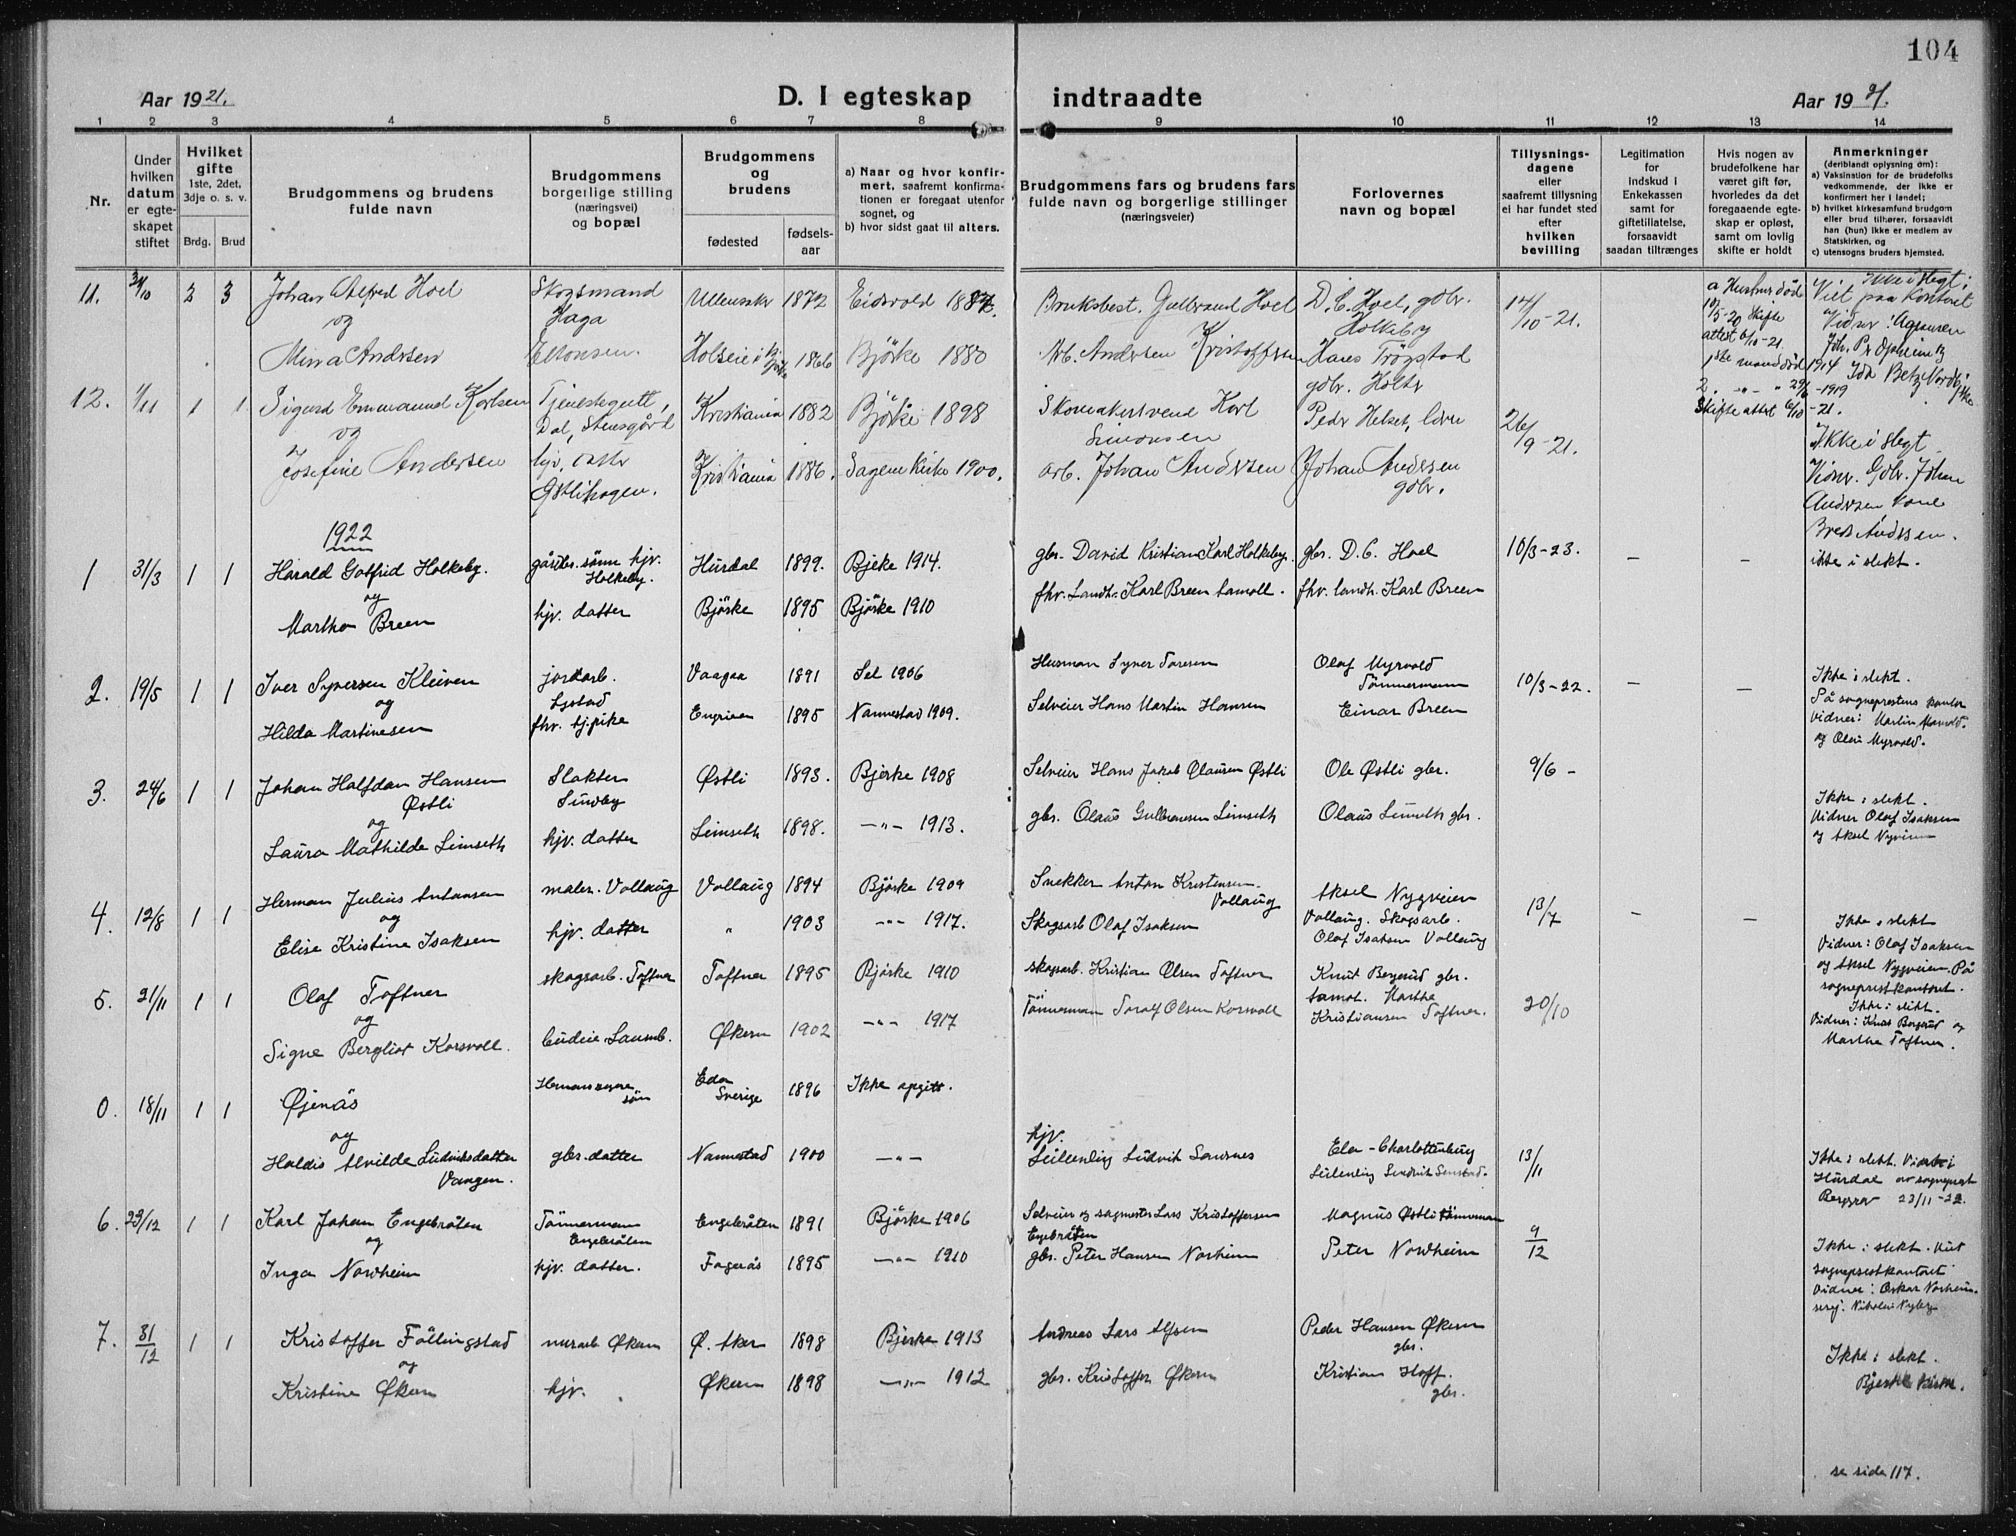 104
Aar 1921.
D. I egteskap indtraadte
Aar 1921.
1 2 3 4 5 6 7 8 9 10 11 12 13 14
Nr.
Under hvilken datum er egteskapet stiftet
Hvilket gifte
1ste, 2det, 3dje o. s. v.
Brdg. Brud
Brudgommens og brudens fulde navn
Brudgommens borgerlige stilling (næringsvei) og bopæl
Brudgommens og brudens
fødested
fødsels-aar
a) Naar og hvor konfirmert, saafremt konfirmationen er foregaat utenfor sognet, og
b) hvor sidst gaat til alters.
Brudgommens fars og brudens fars fulde navn og borgerlige stillinger
(næringsveier)
Forlovernes navn og bopæl
Tillysningsdagene eller saafremt tillysning ei har fundet sted efter hvilken bevilling
Legitimation for indskud i Enkekassen samt for giftetillatelse, forsaavidt saadan tiltrænges
Hvis nogen av brudefolkene har været gift før, hvorledes da det foregaaende egteskap er opløst, samt om lovlig skifte er holdt
Anmerkninger
(deriblandt oplysning om):
a) Vaksination for de brudefolks vedkommende, der ikke er konfirmert her i landet;
b) hvilket kirkesamfund brudgom eller brud tilhører, forsaavidt han (hun) ikke er medlem av Statskirken, og
c) utensogns bruders hjemsted.
11. 2 3 Johan Alfred Hoel Skogsmand Haga Ullensakr 1872 Eidsvold Bruksbest. Gulbrand Hoel D. C. Hoel, gdbr. Holkeby 14/10-21. a Hustru død 5-20 Skifte attest 6/10-21. Ikke i slegt; Viet paa Kontoret
og
Minna Andersen 1866 Bjørke 1880 Arb. Andersen Kristoffersen Hans Trøgstad gdbr. Holtr 1ste mand død 1914 2. 1919 Skifte attest 6/10-21.
12. 1/11 1 1 Sigurd Emmanuel Karlsen Tjenestegutt, Dal, Stensgård Kristiania 1882 Bjørke 1898 Skomakersvend Karl Simonsen Peder Helset, 26/9-21. Ikke i slegt
og
Josefine Andersen hjv. datter Kristiania 1886. Sagene Kirke 1900. arb. Johan Andersen Johan Andersen gdbr. Vidner. Gdbr. Johan Andersen
1922
1 31/3 1 1 Harald Gotfrid Holkeby. gårdbr. sønn hjv. Holkeby. Hurdal 1899. Bjøke 1914. gbr. David Kristian Karl Holkeby. gbr. D. C. Hoel 10/3-23. – – ikke i slekt.
og
Martha Breen hjv. datter Bjørke 1895 Bjørke 1910 fhv. Landh. Karl Breen fhv. landh. Karl Breen
2. 19/5 1 1 Iver Syversen Kleiven jordarb. Vaagaa 1891 Sel 1906 Husman Syver Toresen Olaf Myrvold Tømmermann 10/3-22. – – Ikke i slekt.
og
Hilda Martinesen fhv. tj.pike 1895 Nannestad 1909. Selveier Hans Martin Hansen Einar Breen På sogneprestens kontor Vidner: Martin og Olaus Myrvold.
3. 24/6 1 1 Johan Halfdan Hansen Østli Slakter Sundby Østli 1893. Bjørke 1908 Selveier Hans Jakob Olausen Østli Ole Østli gbr. 9/6 – Ikke i slekt.
og
Laura Mathilde Limseth hjv. datter Limseth 1898. –"– 1913. gbr. Olaus Gulbransen Limseth Olaus Limseth gbr. Vidner Olaf Isaksen og Aksel Nygveien
4. 12/8 1 1 Herman Julius Antonsen maler. Vollaug Vollaug 1894 Bjørke 1909 Snekker Anton Kristensen Vollaug Aksel Nygveien Vollaug. Skogsarb. 13/7 – – Ikke i slekt
og
Elise Kristine Isaksen hjv. datter " 1903 –"– 1917. Skogsarb Olaf Isaksen Olaf Isaksen Vollaug Vidner: Olaf Isaksen og Aksel Nygveien. På sogneprestkontoret.
5. 21/11 1 1 Olaf Toftner skogsarb. Toftner Toftner 1895 Bjørke 1910 skogsarb. Kristian Olsen Toftner Knut Bergerud gbr. 20/10 Ikke i slekt.
og
Signe Bergliot Korsvoll. Økern 1902 –"– 1917 Tømmerman Toralf Olsen Korsvoll Martha Kristiansen Toftner. Vidner: Knut Bergerud og Martha Toftner.
0. 18/11 1 1 Øjenäs Eda Sverige 1896 Ikke opgitt.
og
Haldis Alvilde Ludviksdatter Vangen. gbr. datter Nannestad 1900 –"– hjv. Eda – Charlottenburg 13/11 Ikke i slekt. Viet i Hurdal av sogneprest 22/11-22.
6. 23/12 1 1 Karl Johan Engebråten Tømmermann Engebråten Engebråten 1891 Bjørke 1906 Selveier og sagmester Lars Kristoffersen Engebråten Magnus Østli tømmerman 9/12 Ikke i slekt. Viet
og
Inga Nordheim hjv. datter. Fagerås 1895 –"– 1910 gbr. Peter Hansen Norheim Peter Nordheim sogneprestkontoret Vidner: Oskar Norheim
7. 31/12 1 1 Kristoffer Föllingstad murarb Økern Ø. Aker 1898 Bjerke 1913 Andreas Lars Alfsen Peder Hansen Økern gbr. Ikke i slekt.
og
Kristine Økern hjv. Økern 1898 –"– 1912 gbr. Kristoffer Økern Kristian Hoff. gbr. Bjerke Kirke.
se side 117.